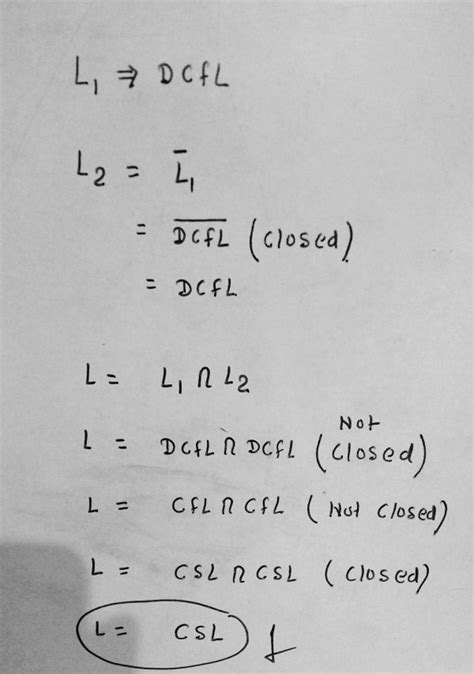 L₁ ⇒ DCfL
L₂ = L̅₁
= D̅C̅f̅L̅ (closed)
= DCfL
L = L₁ ∩ L₂
L = DCfL ∩ DCfL (Not closed)
L = CfL ∩ CfL (Not closed)
L = CSL ∩ CSL (closed)
L = CSL